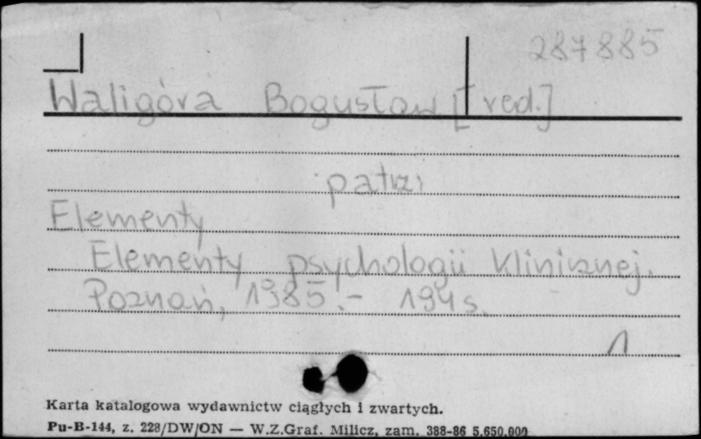 287885
Waligóra Bogusław [red.]
patrz:
Elementy
Elementy psychologii klinicznej.
Poznań, 1985.- 194 s.
1
Karta katalogowa wydawnictw ciągłych i zwartych.
Pu-B-144, z. 228/DW/ON — W.Z.Graf. Milicz, zam. 388-86 5.650.000